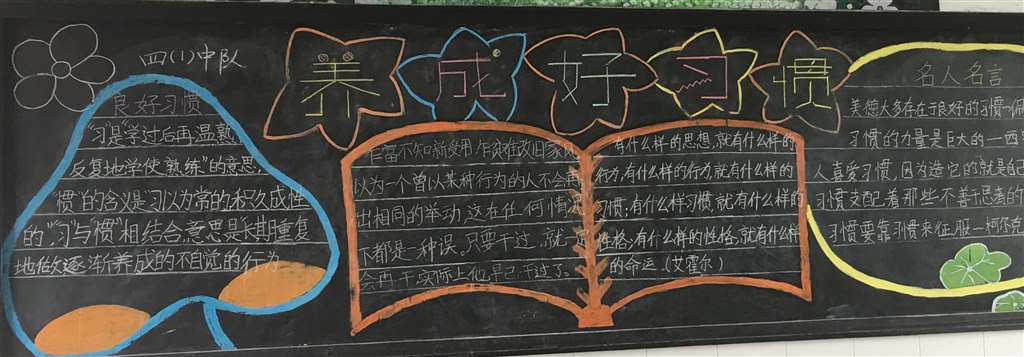 四(1)中队
养成好习惯
良好习惯
"习"是"学过后再温熟
反复地学使熟练"的意思,
"惯"的含义是"习以为常的积久成性
的","习"与"惯"相结合,意思是长期重复
地做,逐渐养成的不自觉的行为
乍富不知新受用,乍贫难改旧家风
以为一个曾以某种行为的人不会再
出相同的举动,这在任何情况
下都是一种误。只要干过,就一定
会再干,实际上他早已干过了。
有什么样的思想,就有什么样的
行为,有什么样的行为,就有什么样的
习惯;有什么样习惯,就有什么样的
性格;有什么样的性格,就有什么样
的命运.(艾霍尔)
名人名言
美德大多存在于良好的习惯—佩
习惯的力量是巨大的—西
人喜爱习惯,因为造它的就是自己
习惯支配着那些不善于思考的
习惯要靠习惯来征服—柯尔克